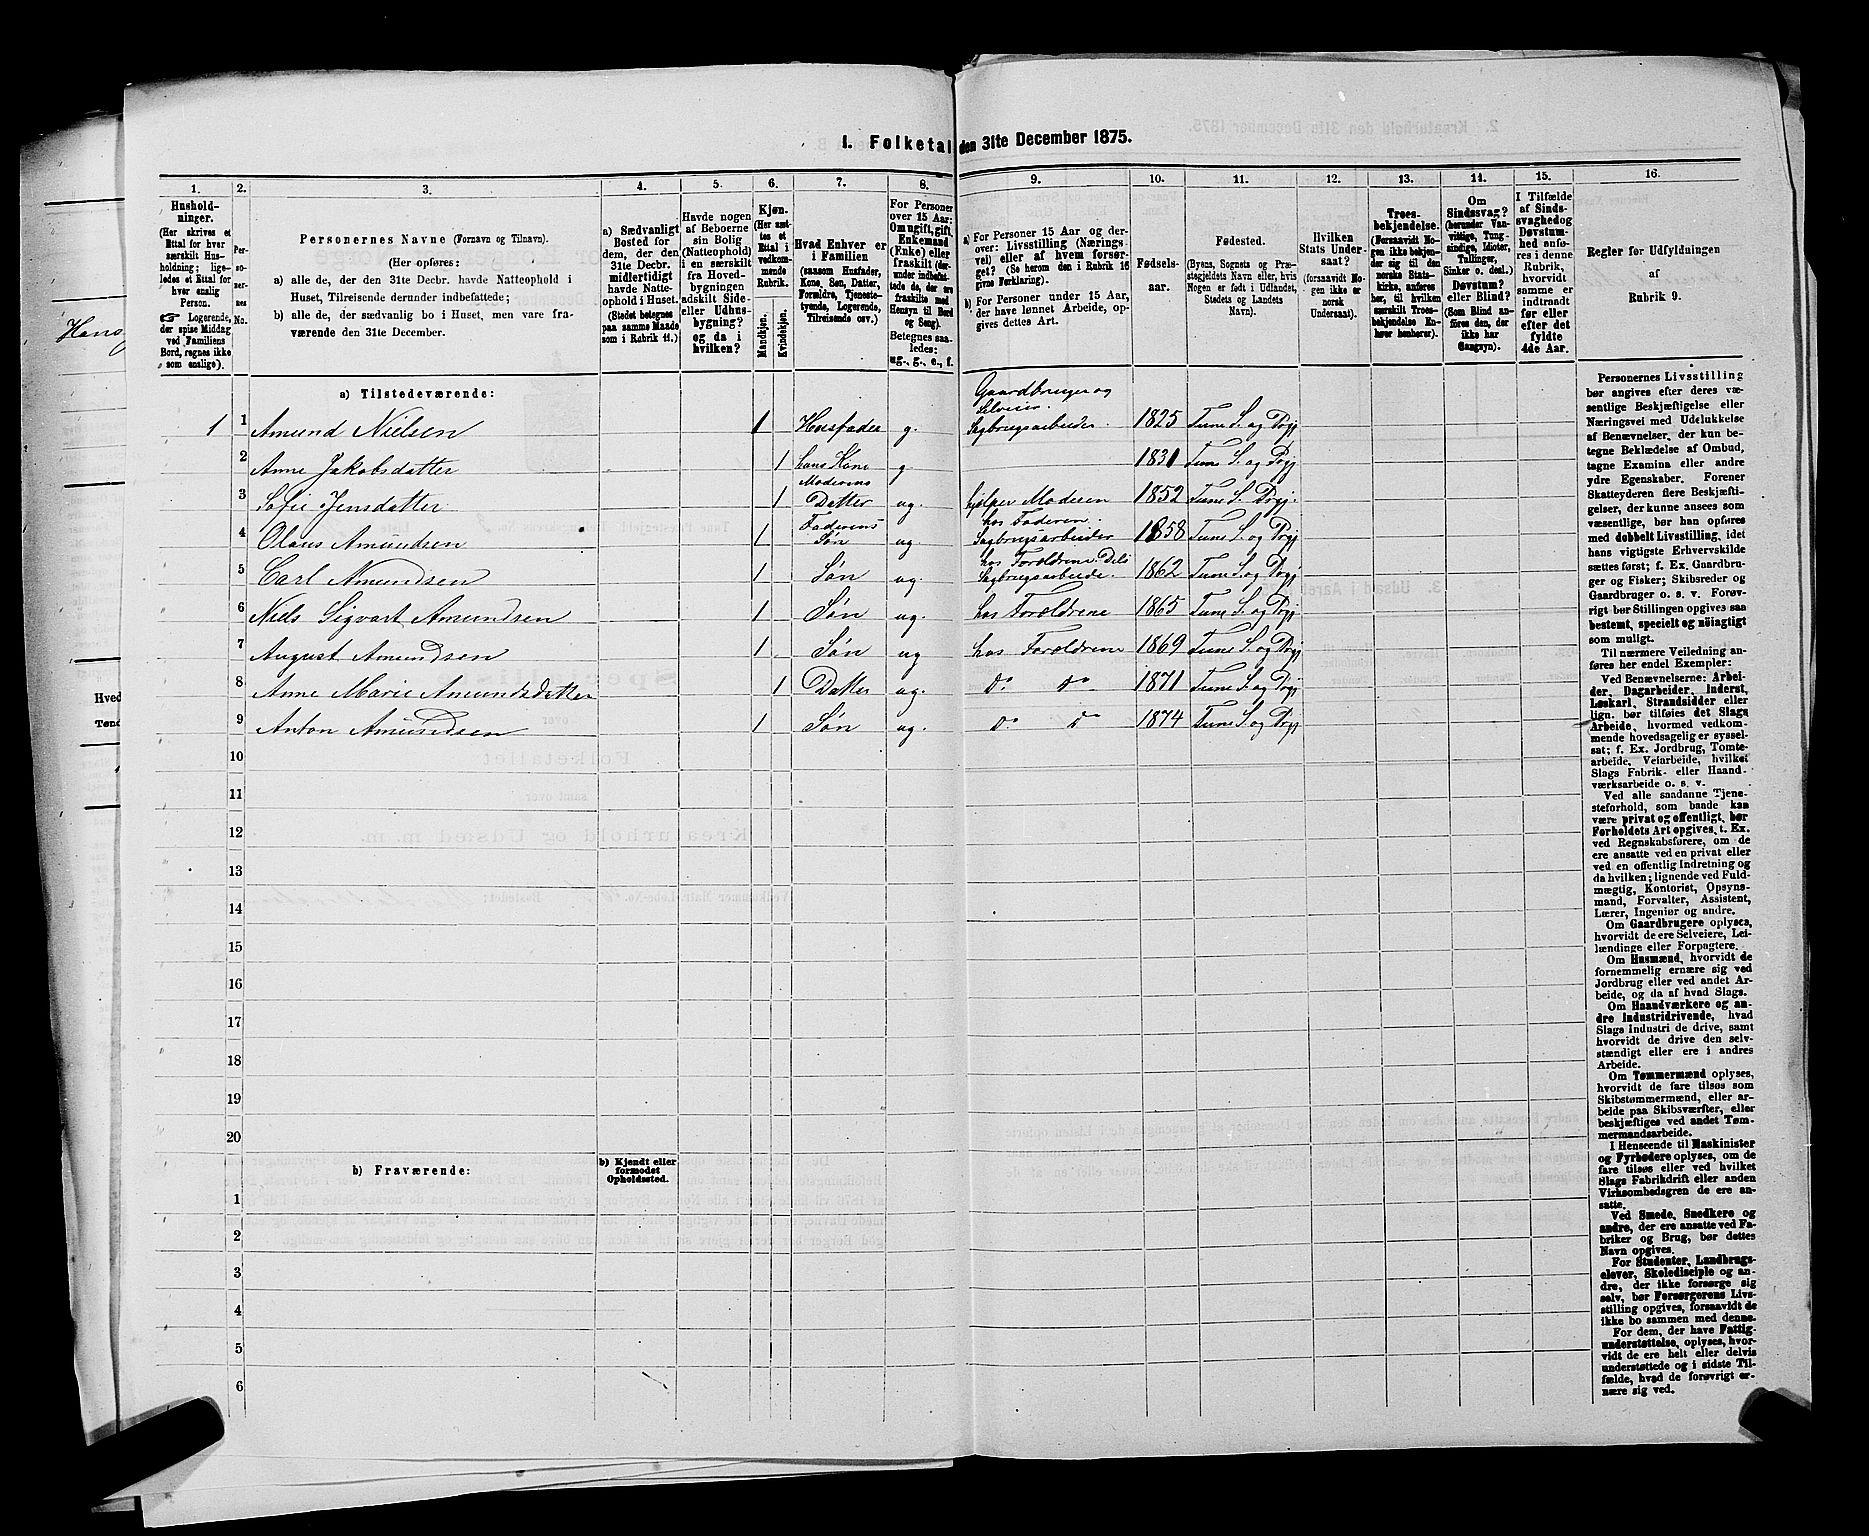 I. Folketal den 31te December 1875.
1.
2.
3.
4.
5.
6.
7.
8.
9.
10.
11.
12.
13.
14.
15.
16.
Hushold-
ninger.
(Her skrives et
Ettal for hver
særskilt Hus-
holdning; lige-
ledes et Ettal for
hver enslig
Person.
☞ Logerende,
der spise Middag
ved Familiens
Bord, regnes ikke
som enslige).
Per-
so-
ner-
nes
No.
Personernes Navne (Fornavn og Tilnavn).
(Her opføres:
a) alle de, der den 31te Decbr. havde Natteophold i
Huset, Tilreisende derunder indbefattede;
b) alle de, der sædvanlig bo i Huset, men vare fra-
værende den 31te December.
a) Sædvanligt
Bosted for
dem, der den
31te Decbr.
midlertidigt
havde Natte-
ophold i Huset.
(Stedet betegnes
paa samme Maade
som i Rubrik 11.)
Havde nogen
af Beboerne
sin Bolig
(Natteophold)
i en særskilt
fra Hoved-
bygningen
adskilt Side-
eller Udhus-
bygning?
og da i
hvilken?
Kjøn.
(Her sæt-
tes et
Ettal i
vedkom-
mende
Rubrik.
Mandkjøn.
Kvindekjøn.
Hvad Enhver er
i Familien
(saasom Husfader,
Kone, Søn, Datter,
Forældre, Tjeneste-
tyende, Logerende,
Tilreisende osv.)
For Personer
over 15 Aar:
Om ugift, gift,
Enkemand
(Enke) eller
fraskilt (der-
under indbefat-
tede de, der ere
fraskilte med
Hensyn til Bord
og Seng).
Betegnes saa-
ledes:
ug., g., e., f.
a) For Personer 15 Aar og der-
over: Livsstilling (Nærings-
vei) eller af hvem forsør-
get? (Se herom den i Rubrik 16
givne Forklaring).
b) For Personer under 15 Aar,
der have lønnet Arbeide, op-
gives dettes Art.
Fødsels-
aar.
Fødested.
(Byens, Sognets og Præ-
stegjeldets Navn eller, hvis
Nogen er født i Udlandet,
Stedets og Landets
Navn).
Hvilken
Stats Under-
saat?
(forsaavidt No-
gen ikke er
norsk
Undersaat).
Troes-
bekjendelse.
(Forsaavidt No-
gen ikke beken-
der sig til den
norske Stats-
kirke, anføres
her, til hvilken
særskilt Troes-
bekjendelse En-
hver henhører).
Om
Sindssvag?
(herunder Van-
vittige, Tung-
sindige, Idioter,
Tullinger,
Sinker o. desl.)
Døvstum?
eller Blind?
(Som Blind an-
føres den, der
ikke har
Gangsyn).
I Tilfælde
af Sinds-
svaghed og
Døvstum-
hed anfø-
res i denne
Rubrik,
hvorvidt
samme er
indtraadt
før eller
efter det
fyldte
4de Aar.
Regler før Udfyldningen
af
Rubrik 9.
a) Tilstedeværende:
1 1 Amund Nielsen 1 Husfader g. Gaardbruger og Selveier. Sagbrugsarbeider. 1825 Tune S. og Prgj
2 Anne Jakobsdatter 1 hans Kone g 1831 Tune S. og Prgj
3 Sofie Jensdatter 1 Moderens Datter ug. hjælper Moderen 1852 Tune S. Prgj.
4 Olaus Amundsen 1 Faderens Søn ug hos Faderen. Sagbrugsarbeider 1858 Tune S. og Prgj
5 Carl Amundsen 1 Søn ug. hos Forældrene. Dels Sagbrugsarbeide. 1862 Tune S. og Prgj
6 Niels Sigvart Amundsen 1 Søn ug. hos Forældrene 1865 Tune S. og Prgj
7 August Amundsen 1 Søn ug hos Forældrene 1869 Tune S. og Prgj
8 Anne Marie Amundsdatter 1 Datter ug. do do 1871 Tune S. og Prgj
9 Anton Amundsen 1 Søn ug. do do 1874 Tune S. og Prgj
10
11
12
13
14
15
16
17
18
19
20
b) Fraværende:
b) Kjendt eller
formodet
Opholdssted.
1
2
3
4
5
6
Personernes Livsstilling
bør angives efter deres væ-
sentlige Beskjæftigelse eller
Næringsvei med Udelukkelse
af Benævnelser, der kun be-
tegne Beklædelse af Ombud,
tagne Examina eller andre
ydre Egenskaber. Forener
Skatteyderen flere Beskjæfti-
gelser, der kunne ansees som
væsentlige, bør han opføres
med dobbelt Livsstilling, idet
hans vigtigste Erhvervskilde
sættes først; f. Ex. Gaardbru-
ger og Fisker; Skibsreder og
Gaardbruger o. s. v. Forøv-
rigt bør Stillingen opgives saa
bestemt, specielt og nöiagtigt
som muligt.
Til nærmere Veiledning an-
føres her endel Exempler:
Ved Benævnelserne: Arbei-
der, Dagarbeider, Inderst,
Løskarl, Strandsidder eller
lign. bør tilføies det Slags
Arbeide, hvormed vedkom-
mende hovedsagelig er syssel-
sat; f. Ex. Jordbrug, Tomte-
arbeide, Veiarbeide, hvilket
Slags Fabrik- eller Haand-
værksarbeide o. s. v.
Ved alle saadanne Tjene-
steforhold, som baade kan
være privat og offentligt, bør
Forholdets Art opgives, t. Ex.
ved Regnskabsførere, om de
ere ansatte ved en privat eller
ved en offentlig Indretning og
da hvilken; lignende ved Fuld-
mægtig, Kontorist, Opsyns-
mand, Forvalter, Assistent,
Lærer, Ingeniør og andre.
Om Gaardbrugere oplyses,
hvorvidt de ere Selveiere, Lei-
lændinge eller Forpagtere.
Om Husmænd, hvorvidt de
fornemmelig ernære sig ved
Jordbrug eller ved andet Ar-
beide, og da af hvad Slags.
Om Haandværkere og an-
dre Industridrivende, hvad
Slags Industri de drive, samt
hvorvidt de drive den selv-
stændigt eller ere i andres
Arbeide.
Om Tømmermænd oplyses,
hvorvidt de fare tilsøs som
Skibstømmermænd, eller ar-
beide paa Skibsværfter, eller
beskjæftiges ved andet Tøm-
mermandsarbeide.
I Henseende til Maskinister
og Fyrbødere oplyses, om de
fare tilsøs eller ved hvilket
Slags Fabrikdrift eller anden
Virksomhedsgren de ere an-
satte.
Ved Smede, Snedkere og
andre, der ere ansatte ved Fa-
briker og Brug, bør dettes
Navn opgives.
For Studenter, Landbrugs-
elever, Skoledisciple og an-
dre, der ikke forsørge sig
selv, bør Forsørgerens Livs-
stilling opgives, forsaavidt de
ikke bo sammen med denne.
For dem, der have Fattig-
understøttelse, oplyses, hvor-
vidt de ere helt eller delvis
understøttede og i sidste Til-
fælde, hvad de forøvrigt er-
nære sig ved.
Hans
Hved
Tønd